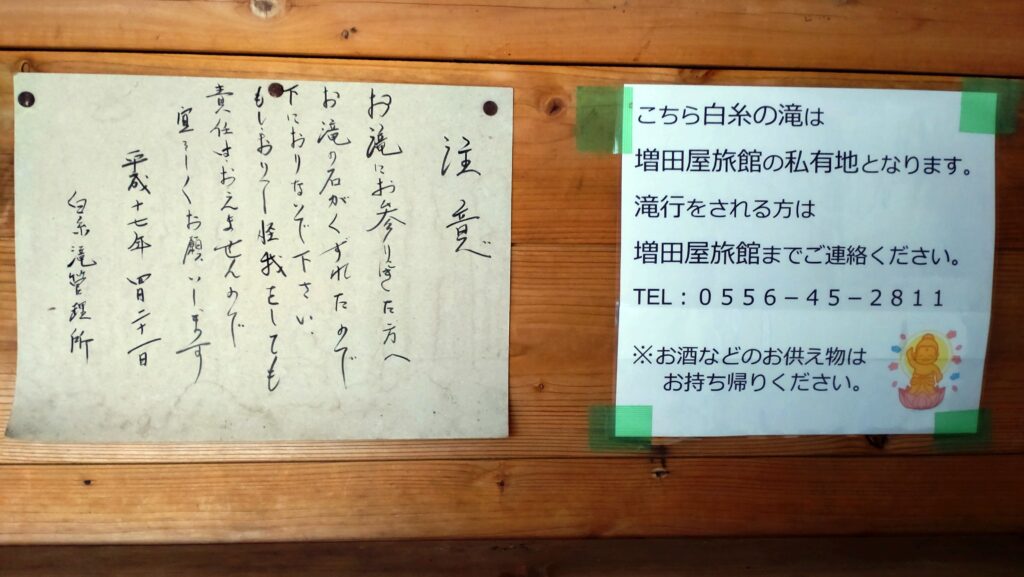 注意
お滝にお参りきた方へ
お滝の石がくずれたので
下におりないで下さい、
もしおりて怪我をしても
責任はおえませんので
宜しくお願いします
平成十七年四月二十一日
白糸滝管理所
こちら白糸の滝は
増田屋旅館の私有地となります。
滝行をされる方は
増田屋旅館までご連絡ください。
TEL：０５５６－４５－２８１１
※お酒などのお供え物は
お持ち帰りください。